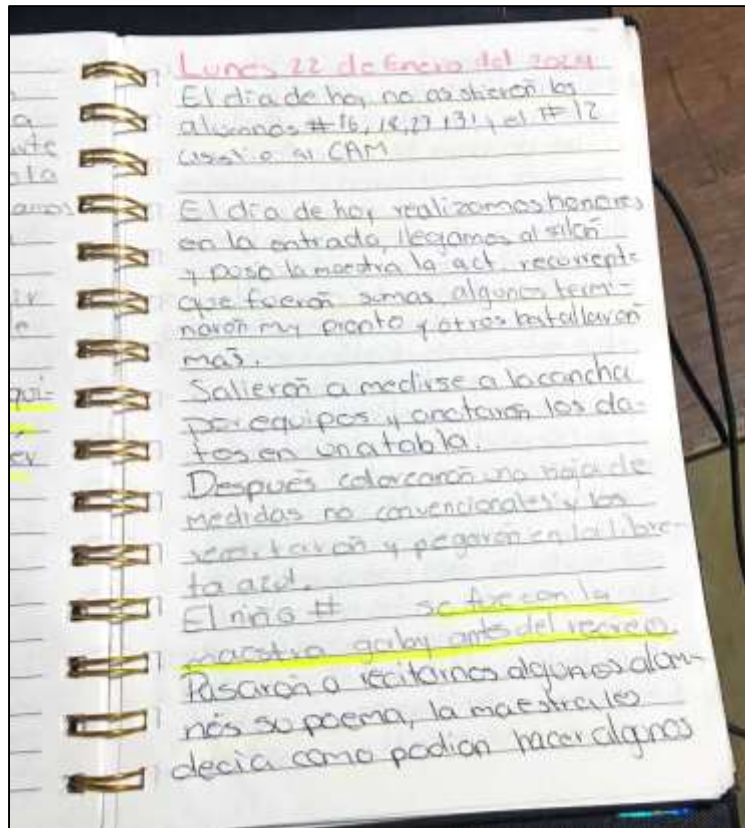 a
arte
sta
amos
ir
e
qui-
er
Lunes 22 de Enero del 2024
El dia de hoy no asistierón los
alumnos # 16, 18, 27, 31 y el # 12
asistio al CAM
El dia de hoy realizamos honores
en la entrada, llegamos al salón
y puso la maestra la act. recurrente
que fuerón sumas algunos termi-
narón my pronto y otros batallarón
más.
Salierón a medirse a la cancha
por equipos y anotarón los da-
tos en una tabla.
Después colorearón una hoja de
medidas no convencionales y las
recortarón y pegarón en la libre-
ta azul.
El niño # se fue con la
maestra gaby antes del recreo.
Pasarón a recitarnos algunos alom-
nós su poema, la maestra les
decia como podian hacer algunos